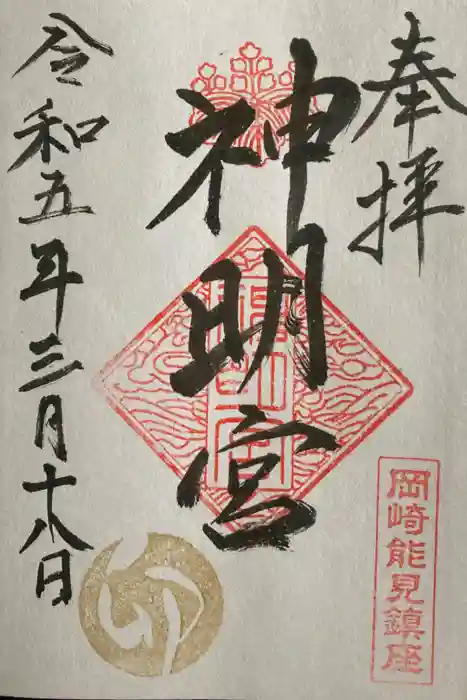 奉拝
岡崎能見鎮座
神明宮
神明宮
令和五年三月十八日
卯